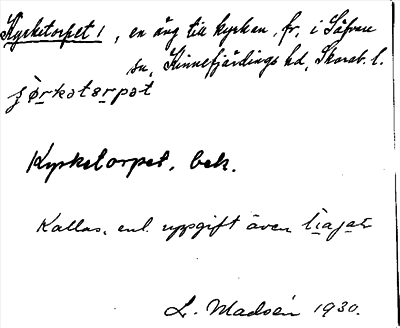 Kyrketorpet 1, en äng till kyrkan, fr. i Säfvare
sn, Kinnefjärdings hd, Skarab. l.
Kyrketorpet, bek.
Kallas, enl. uppgift även
L. Madsén 1930.